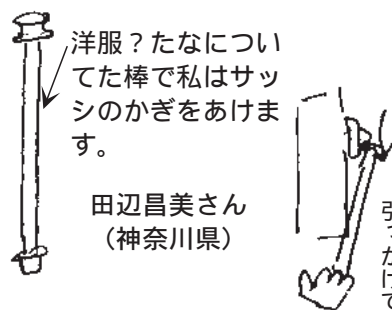 洋服?たなについ
てた棒で私はサッ
シのかぎをあけま
す。
田辺昌美さん
(神奈川県)
引っかけて